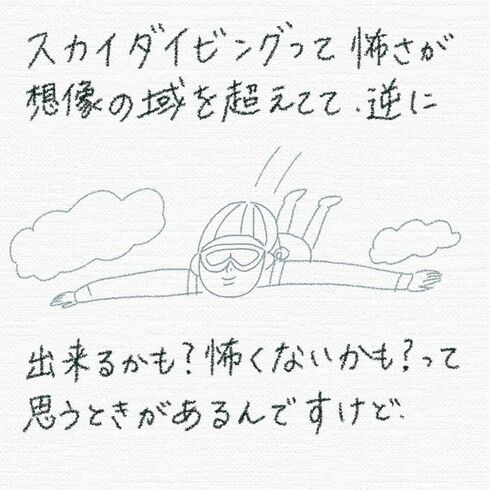 スカイダイビングって怖さが
想像の域を超えてて、逆に
出来るかも?怖くないかも?って
思うときがあるんですけど、